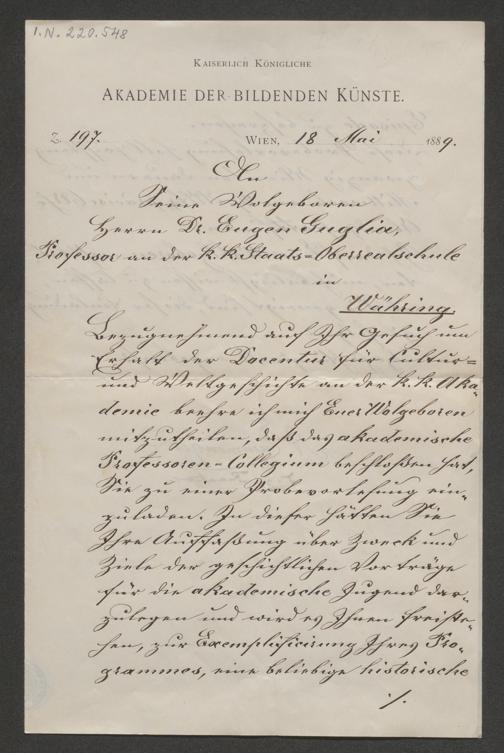 I.N. 220.548
KAISERLICH KÖNIGLICHE
AKADEMIE DER BILDENDEN KÜNSTE.
Z. 197. WIEN, 18 Mai 1889.
An
Seine Wolgeboren
Herrn Dr. Eugen Guglia,
Professor an der k. k. Staats=Oberrealschule
in
Währing.
Bezugnehmend auf Ihr Gesuch um
Erhalt der Docentur für Cultur=
und Weltgeschichte an der k. k. Aka=
demie beehre ich mich Euer Wolgeboren
mitzutheilen, daß das akademische
Professoren=Collegium beschloßen hat,
Sie zu einer Probevorlesung ein=
zuladen. In dieser hätten Sie
Ihre Auffaßung über Zweck und
Ziele der geschichtlichen Vorträge
für die akademische Jugend dar=
zulegen und wird es Ihnen freiste=
hen, zur Exemplificirung Ihres Pro=
grammes, eine beliebige historische
./.